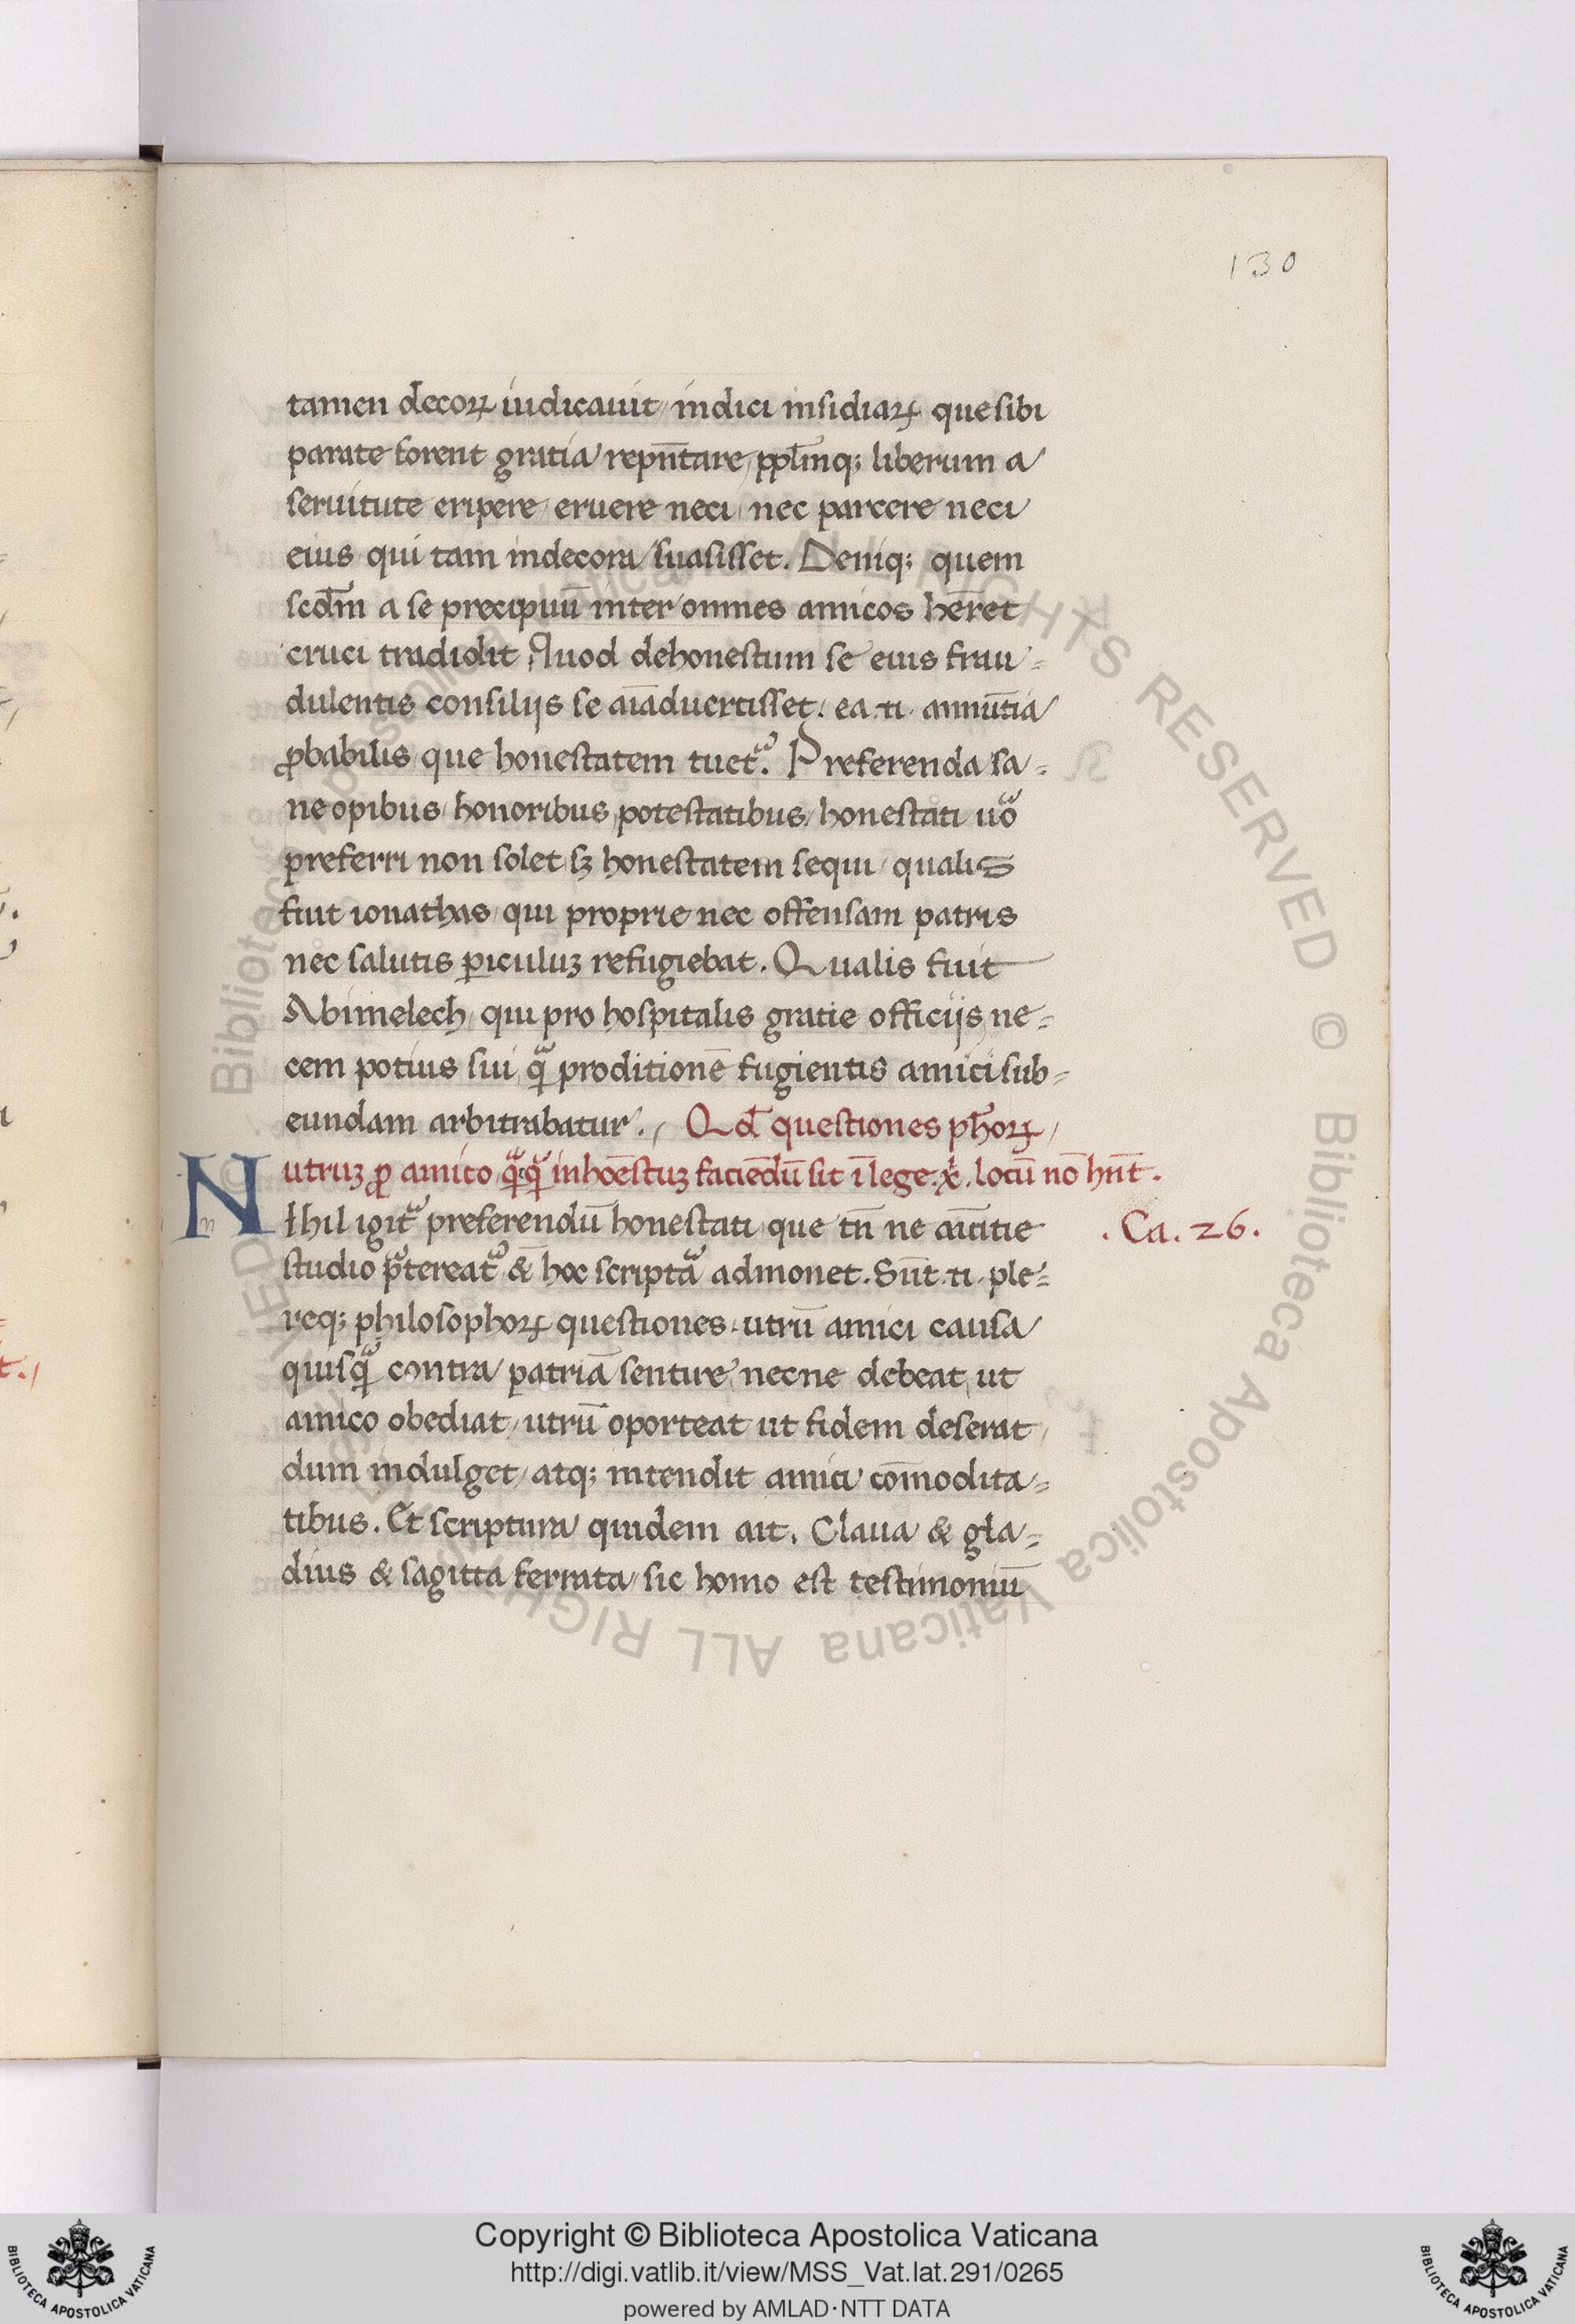 130
tamen decoꝝ iudicauit / indici insidiaꝝ que sibi
parate forent gratia repn̄tare, pplm̄qꝫ liberum a
seruitute eripere / eruere neci / nec parcere neci
eius qui tam indecora suasisset. Deniqꝫ quem
scd̄m a se precipuū inter omnes amicos hēret
cruci tradidit. Quod dehonestum se eius frau=
dulentis consilijs se aīaduertisset. ea .n. annūtia
ꝓbabilis que honestatem tuet᷑. Preferenda sa=
ne opibus / honoribus / potestatibus / honestati uo᷑
preferri non solet sꝫ honestatem sequi / qualis
fuit ionathas / qui proprie nec offensam patris
nec salutis ꝑiculuꝫ refugiebat. Qualis fuit
Abimelech / qui pro hospitalis gratie officijs ne=
cem potius sui qᷓ proditionē fugientis amici sub=
eundam arbitrabatur. / Qd̄ questiones ph̄oꝝ /
utruꝫ ꝓ amico qᷓqᷓ inhoēstuꝫ faciēdū sit ī lege. x̄. locū nō hn̄t.
NIhil igit᷑ preferendū honestati que tn̄ ne aīcitie
. Ca. 26.
studio p̄tereat᷑ & hoc scriptᷓa admonet. Sūt .n. ple=
reqꝫ philosophoꝝ questiones. utrū amici causa
quisqᷓ contra ꝑatriā sentire necne debeat, ut
amico obediat / utrū oporteat ut fidem deserat
dum indulget / atqꝫ intendit amici cōmodita=
tibus. Et scriptura quidem ait. Claua & gla=
dius & sagitta ferrata / sic homo est testimoniū
Copyright © Biblioteca Apostolica Vaticana
http://digi.vatlib.it/view/MSS_Vat.lat.291/0265
powered by AMLAD·NTT DATA